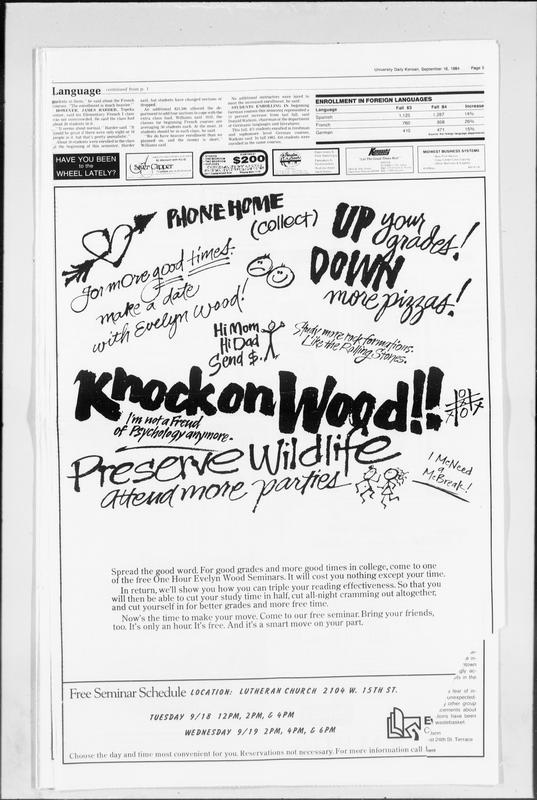 University Daily Kansan, September 18, 1984 Page 5
Language continued from p. 1
students in them," he said about the French
courses. "The enrollment is much heavier."
HOWEVER, JAMES HARDER, Topeka
senior, said his Elementary French I class
was not overcrowded. He said the class had
about 20 students in it.
"It seems about normal," Harder said. "It
would be great if there were only eight or 10
people in it, but that's pretty unrealistic."
About 30 students were enrolled in the class
at the beginning of this semester, Harder
said, but students have changed sections or
dropped.
An additional $21,500 allowed the de-
partment to add four sections to cope with the
extra class load, Williams said. Still, the
classes for beginning French courses are
averaging 30 students each. At the most, 24
students should be in each class, he said.
"We do have heavier enrollment than we
planned on, and the money is short,"
Williams said.
No additional instructors were hired to
meet the increased enrollment, he said.
STUDENTS ENROLLING IN beginning
German courses this semester represented a
15 percent increase from last fall, said
Donald Watkins, chairman of the department
of Germanic languages and literatures.
This fall, 471 students enrolled in freshman
and sophomore level German courses,
Watkins said. In fall 1983, 410 students were
enrolled in the same courses.
ENROLLMENT IN FOREIGN LANGUAGES
Language Fall 83 Fall 84 Increase
Spanish 1,125 1,287 14%
French 760 958 26%
German 410 471 15%
HAVE YOU BEEN
to the
WHEEL LATELY?
$200
MIDWEST BUSINESS SYSTEMS
PHONE HOME
(collect)
UP your
grades!
DOWN
more pizzas!
for more good times.
make a date
with Evelyn Wood!
Hi Mom
Hi Dad
Send $.
Study more rock formations.
Like the Rolling Stones.
Knock on Wood!!
I'm not a Freud
of Psychology anymore.
Preserve Wildlife
attend more parties
I McNeed
a
McBreak!
Spread the good word. For good grades and more good times in college, come to one
of the free One Hour Evelyn Wood Seminars. It will cost you nothing except your time.
In return, we'll show you how you can triple your reading effectiveness. So that you
will then be able to cut your study time in half, cut all-night cramming out altogether,
and cut yourself in for better grades and more free time.
Now's the time to make your move. Come to our free seminar. Bring your friends,
too. It's only an hour. It's free. And it's a smart move on your part.
Free Seminar Schedule LOCATION: LUTHERAN CHURCH 2104 W. 15TH ST.
TUESDAY 9/18 12PM, 2PM, & 4PM
WEDNESDAY 9/19 2PM, 4PM, & 6PM
Choose the day and time most convenient for you. Reservations not necessary. For more information call